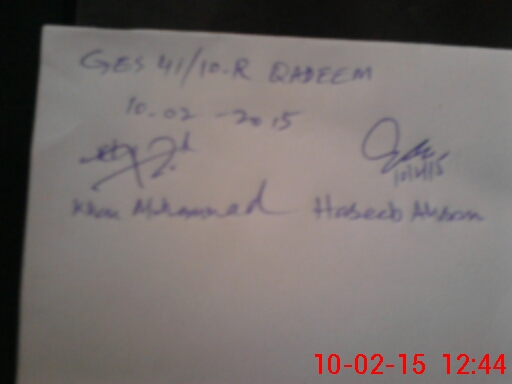 GES 41/10-R QADEEM
10-02-2015
10/2/15
Khan Muhammad Haseeb Ahsan
10-02-15 12:44